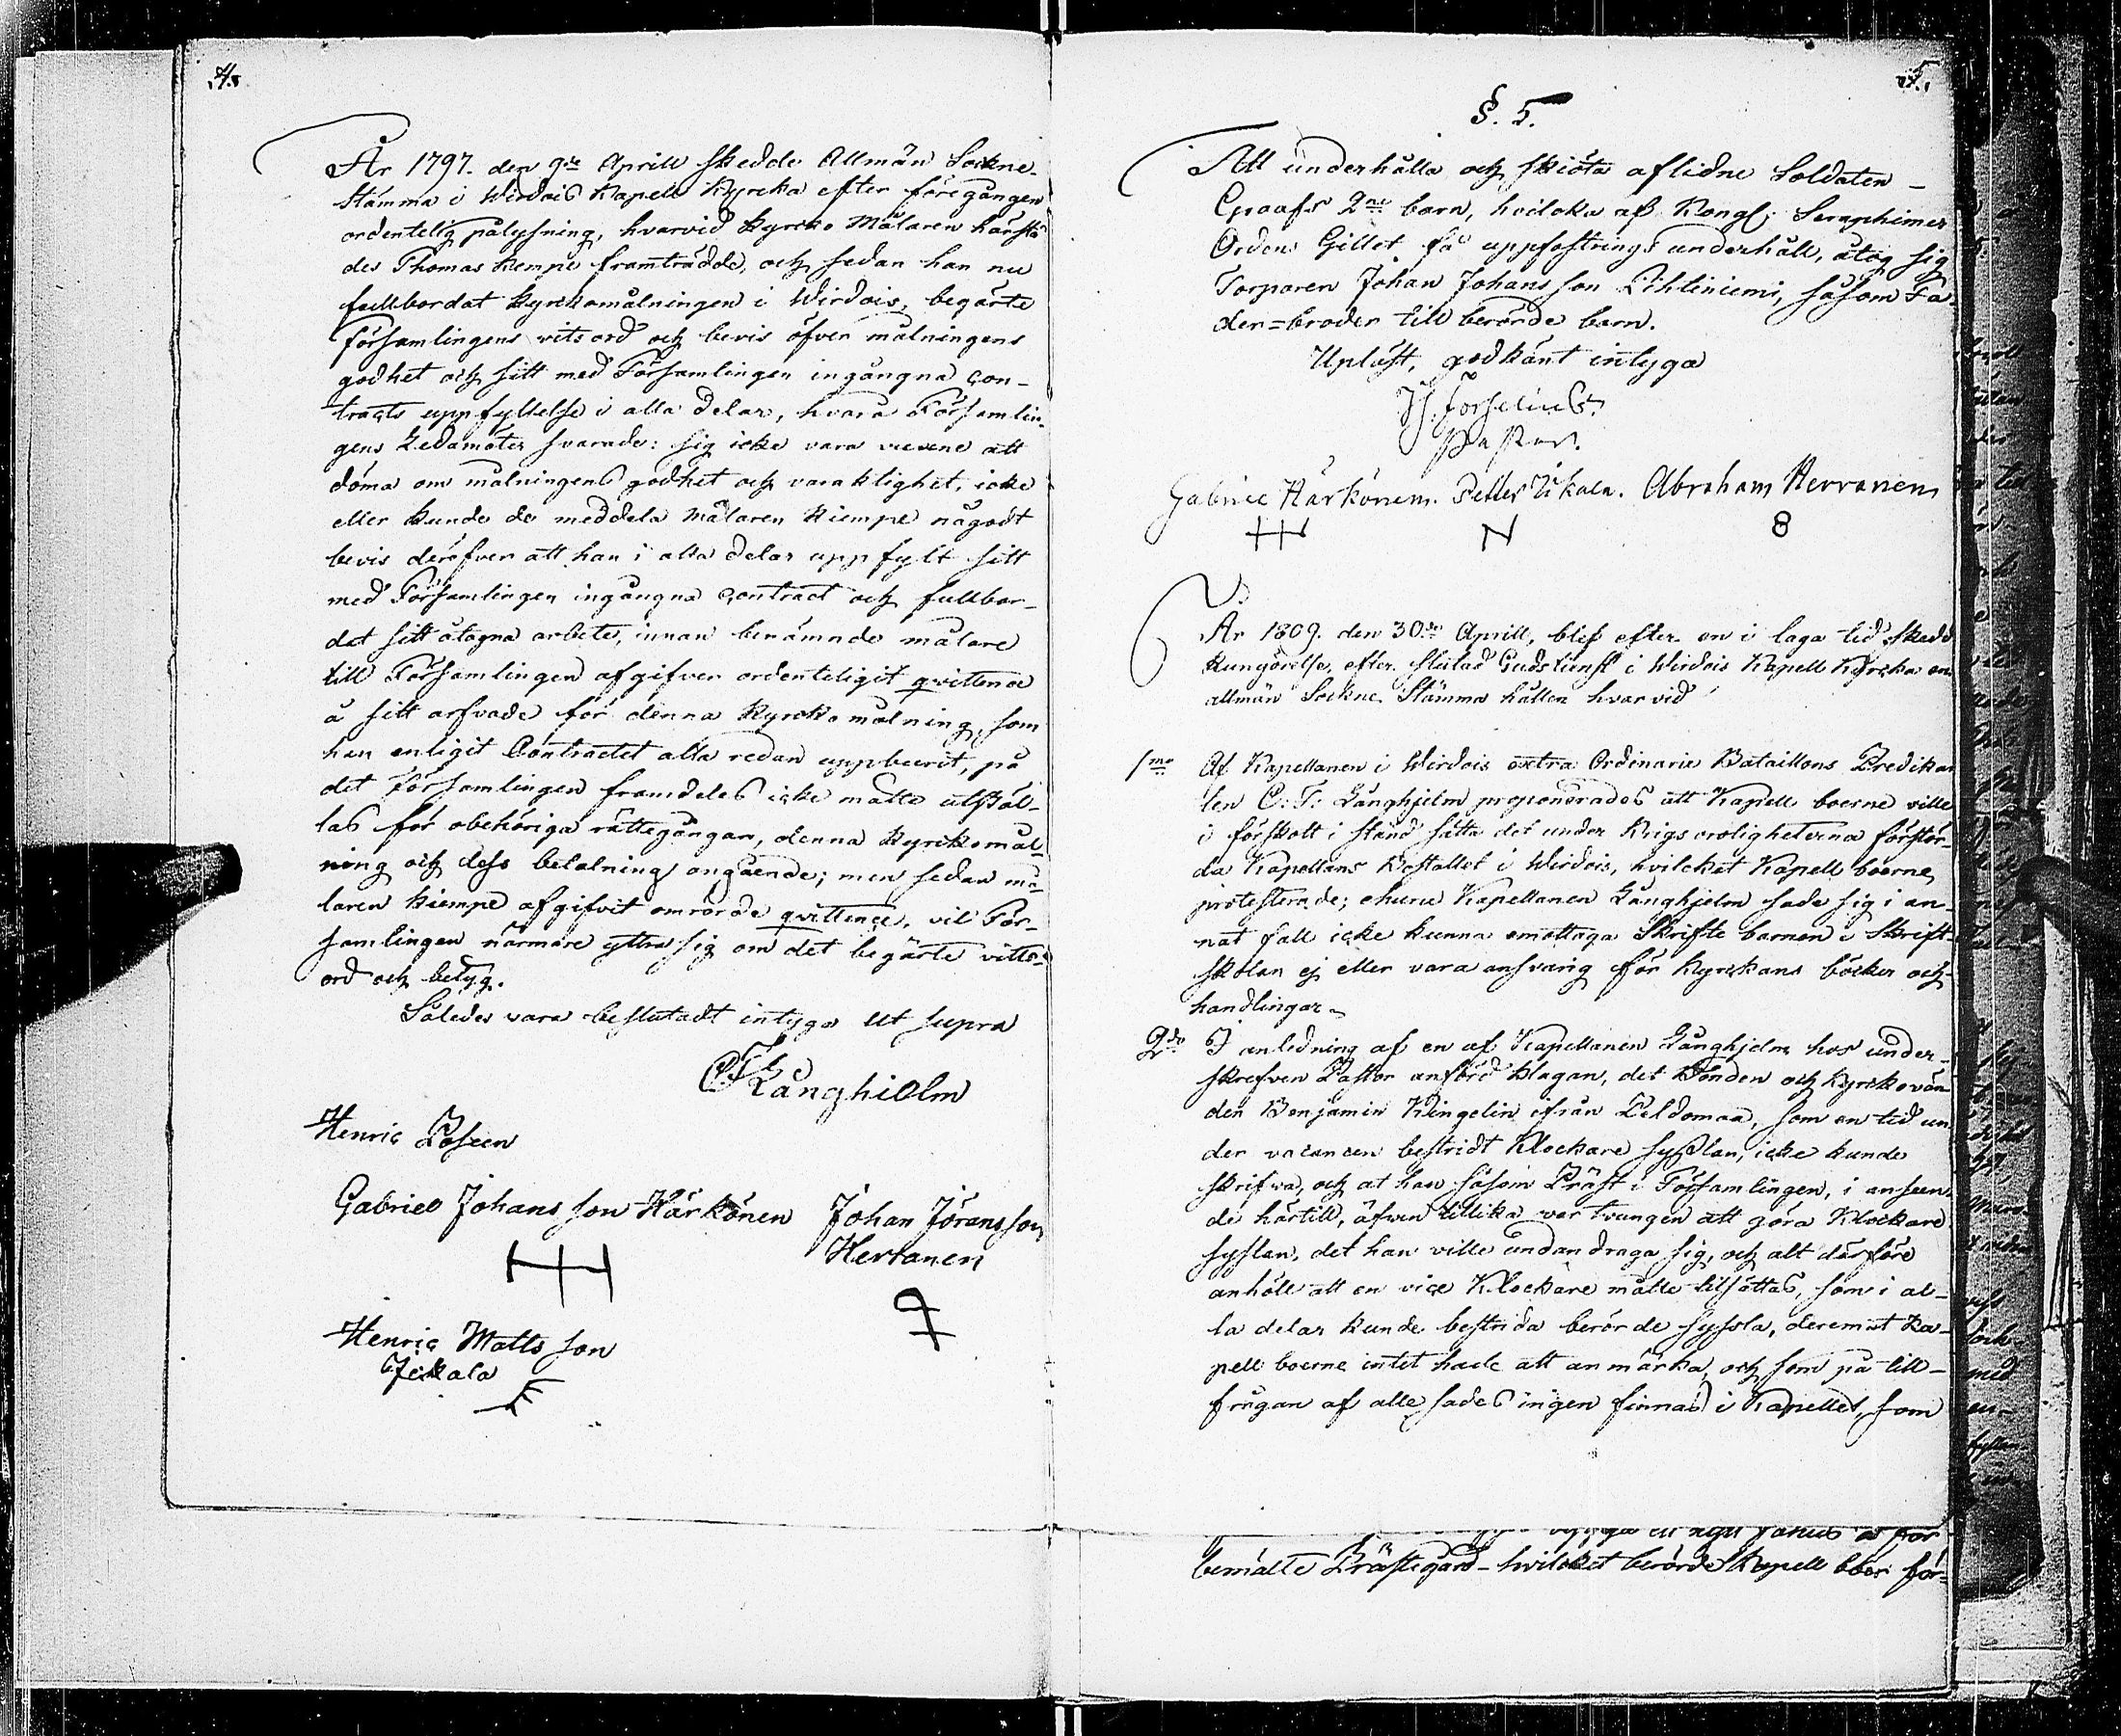 4.
År 1797. den 9de Aprill skedde Allmän Sockne-
stämma i Wirdois Kapell Kyrcka efter föregången
ordentelig pålysning, hvarvid Kyrcko Målaren härstä-
des Thomas Kempe framträdde, och sedan han nu
fullbordat Kyrckomålningen i Wirdois, begärte
församlingens vitsord och bevis öfver målningens
godhet och sitt med Församlingen ingångna con-
tracts uppfyllelse i alla delar, hvara Församlin-
gens Ledamöter svarade: sig icke vara vuxne att
döma om målningens godhet och varaklighet, icke
eller kunde de meddela Målaren Kiempe någodt
bevis deröfver att han i alla delar uppfylt sitt
med Församlingen ingångna Contract och fullbor-
dat sitt åtagna arbete, innan benämnde målare
till Församlingen afgifver ordenteligit qvittence
å sitt arfvode för denna Kyrcko målning, som
han enligit Contractet alla redan uppburit, på
det Församlingen framdeles icke måtte utstäl-
las för obehöriga rättegångar, denna Kyrckomål-
ning och dess betalning angående; men sedan må-
laren Kiempe afgifvit omrörde qvittence, vil För-
samlingen närmare yttra sig om det begärte vitts-
ord och betyg.
Således vara beslutadt intyga ut supra
CFLånghielm
Henric Poseen
Gabriel Johans son Härkönen Johan Jöransson
Herranen
Henric Matts son
Jäkala
5.
§. 5.
Att underhålla och skiöta aflidne Soldaten
Graafs 2ne barn, hvilcka af Kongl: Seraphimer
Ordens Gillet få uppfostrings underhåll, åtog sig
Torparen Johan Johansson Lihliniemi, såsom Fa-
der=broder till berörde barn.
Upläst, godkänt intyga
Forselius.
Pastor.
Gabriel Härkönen. Petter Ukala. Abraham Herranen
N 8
År 1809. den 30de Aprill, blef efter en i laga tid skedd
Kungörelse, efter slutad Gudstienst i Wirdois Kapell Kyrcka en
allmän Sockne Stämma hållen hvarvid
1mo Af Kapellanen i Wirdois extra Ordinarie Bataillons Predikan
ten C: F: Långhjelm proponerades att Kapell boerne ville
i förskott i stånd sätta det under Krigs oroligheterna förstör-
da Kapellans Bostället i Wirdois, hvilcket Kapell boerne
protesterade; ehuru Kapellanen Långhjelm sade sig i an-
nat fall icke kunna emottaga Skrifte barnen i Skrift-
skolan ej eller vara ansvarig för Kyrckans böcker och
handlingar.
2do I anledning af en af Kapellanen Långhjelm hos under-
skrefven Pastor anförd klagan, det Bonden och Kyrckovär-
den Benjamin Kingelin ifrån Peldomaa, som en tid un-
der vacancen bestridt Klockare sysslan, icke kunde
skrifva, och at han såsom Präst i Församlingen, i anseen-
de härtill, äfven tillika var tvungen att göra Klockare
sysslan, det han ville undandraga sig, och alt därföre
anhöll att en vice Klockare måtte tilsättas, som i al-
la delar kunde bestrida berörde syssla, deremot Ka-
pell boerne intet hade att anmärka, och som på till-
frågan af alle sades ingen finnas i Kapellet, som
bemälte Prästegård – hvilcket berörde Kapell boer för-